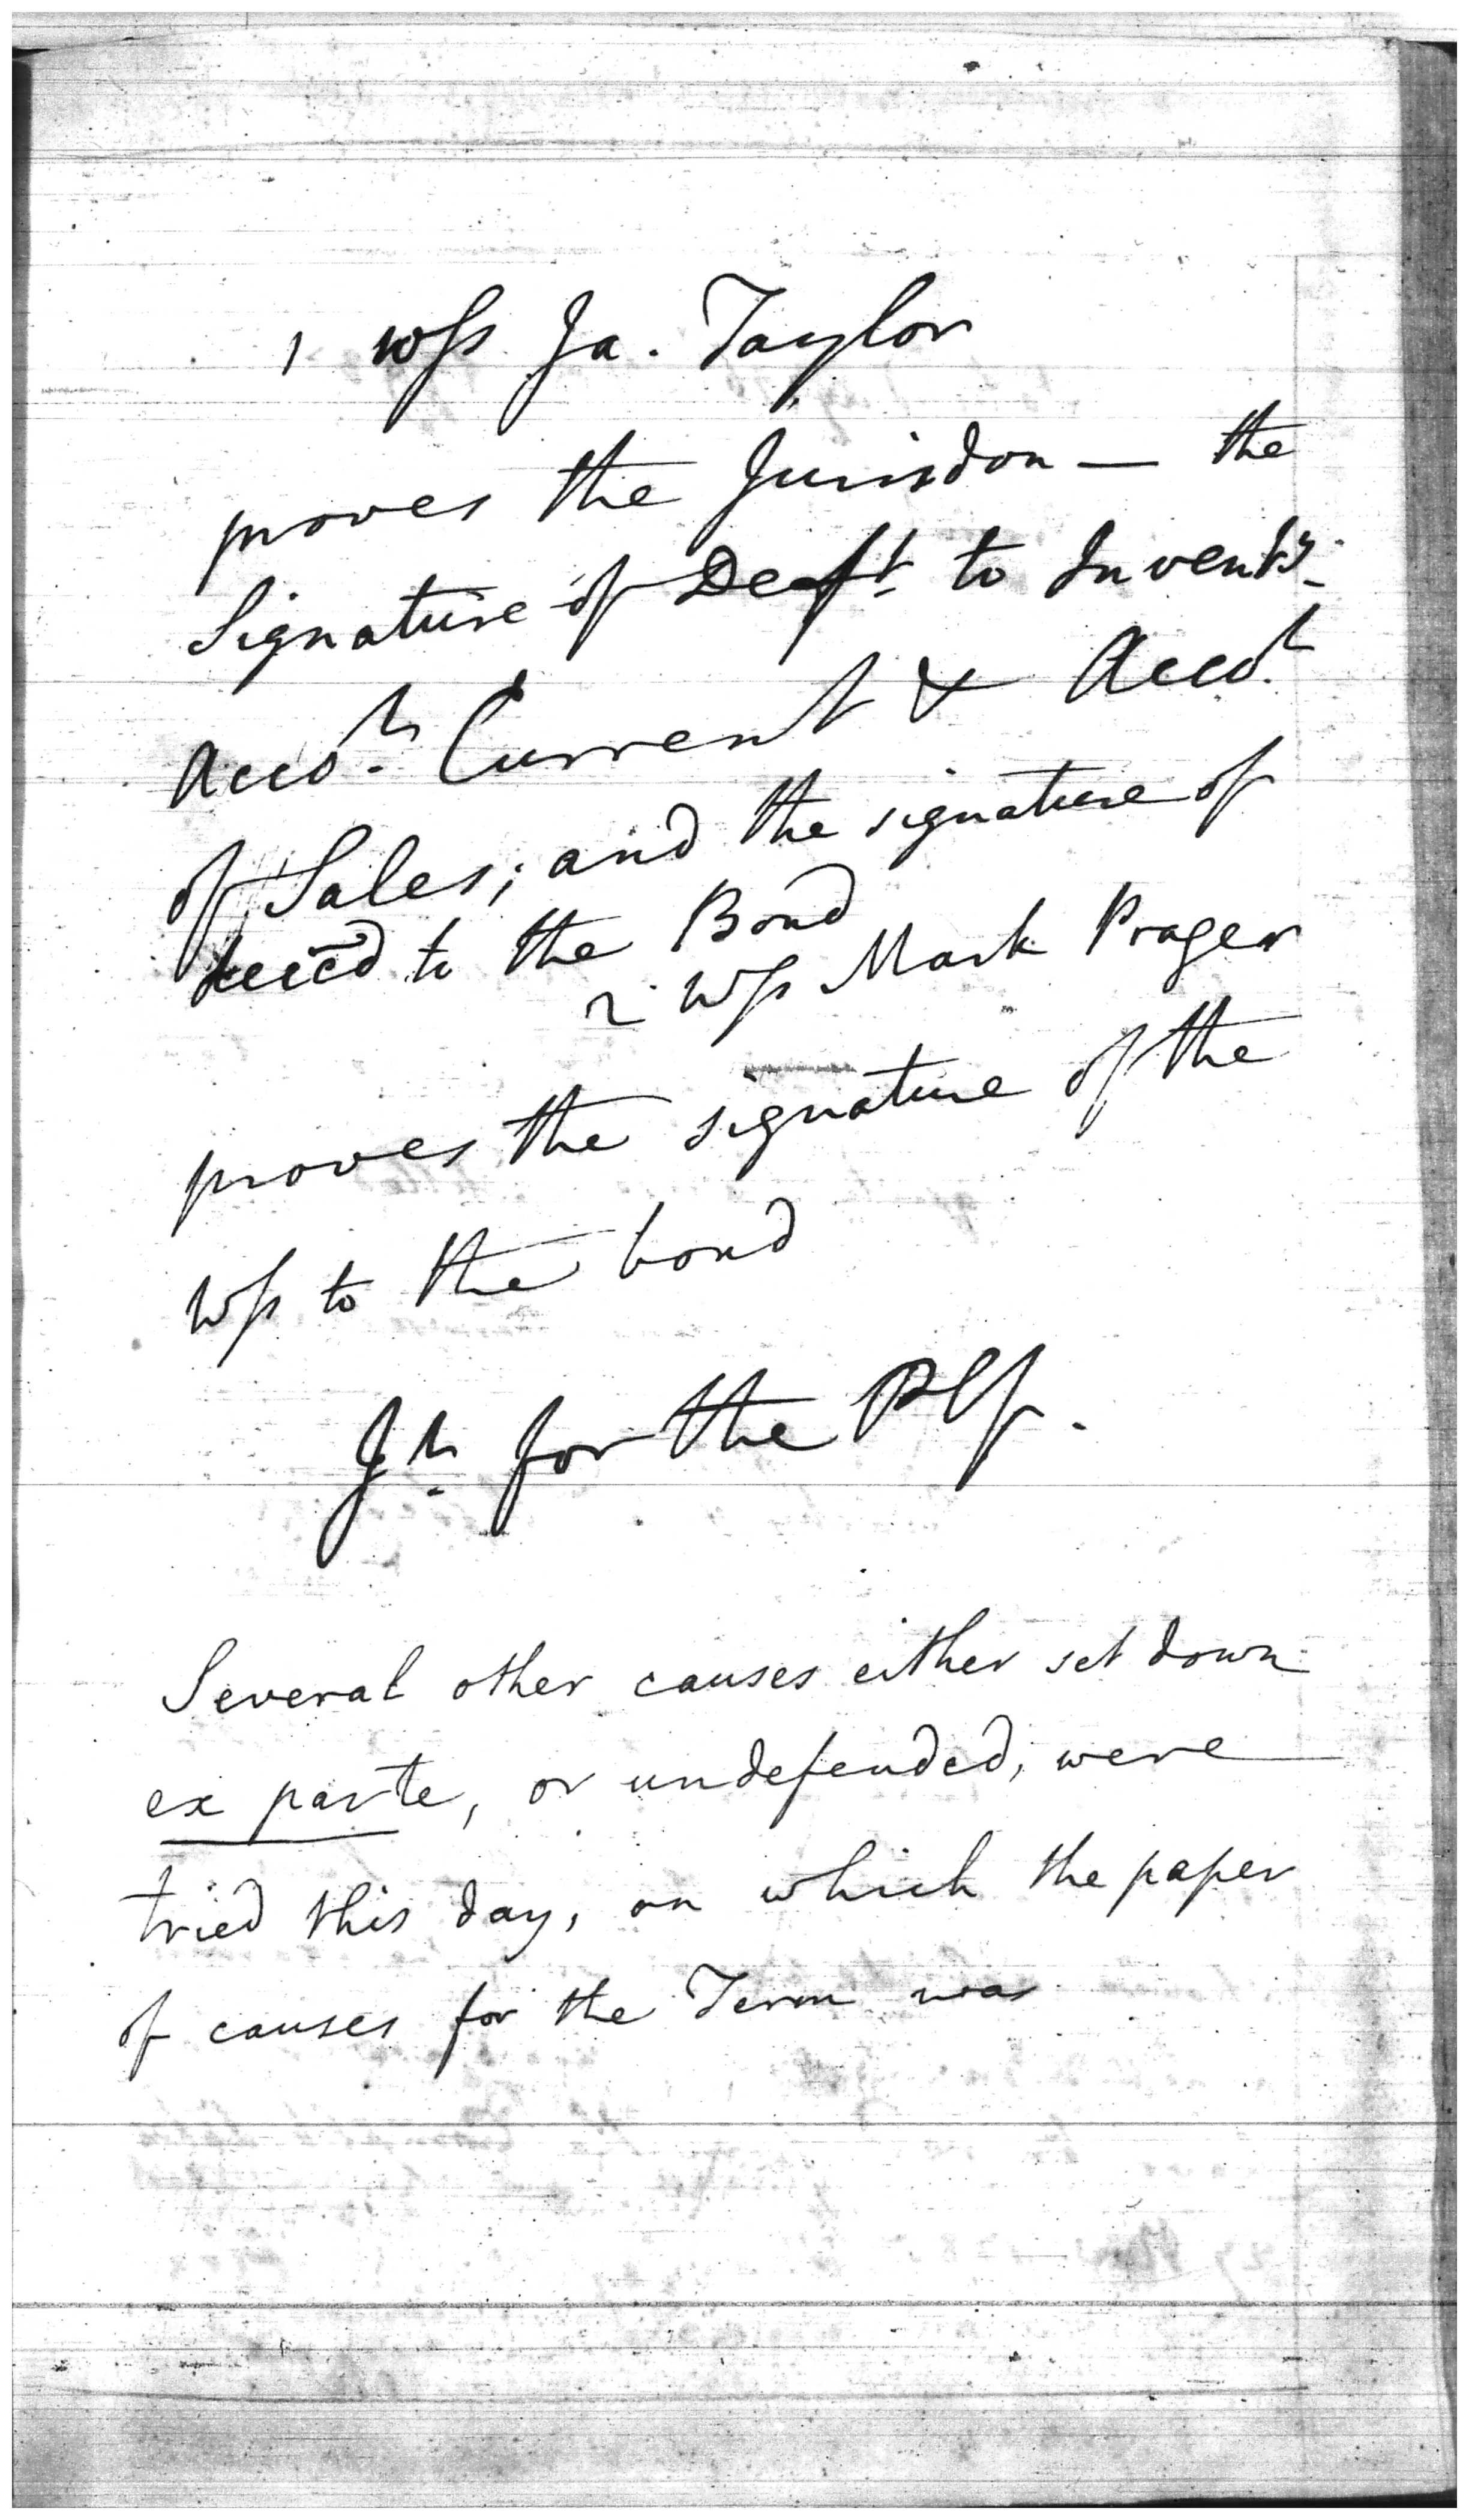 1 Wss Ja. Taylor
proves the Jurisdon — the
Signature of Deft to Inventy.
Accots Current & Accot
of Sales; and the signature of
decēd to the Bond
2 Wss Mark Prager
proves the signature of the
Wss to the bond
Jt. for the Plf.
Several other causes either set down
ex parte, or undefended, were
tried this day, on which the paper
of causes for the Term was